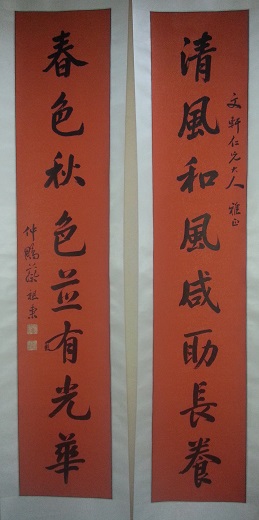 文軒仁兄大人 雅正
清風和風咸助長養
春色秋色並有光華
仲 蔡